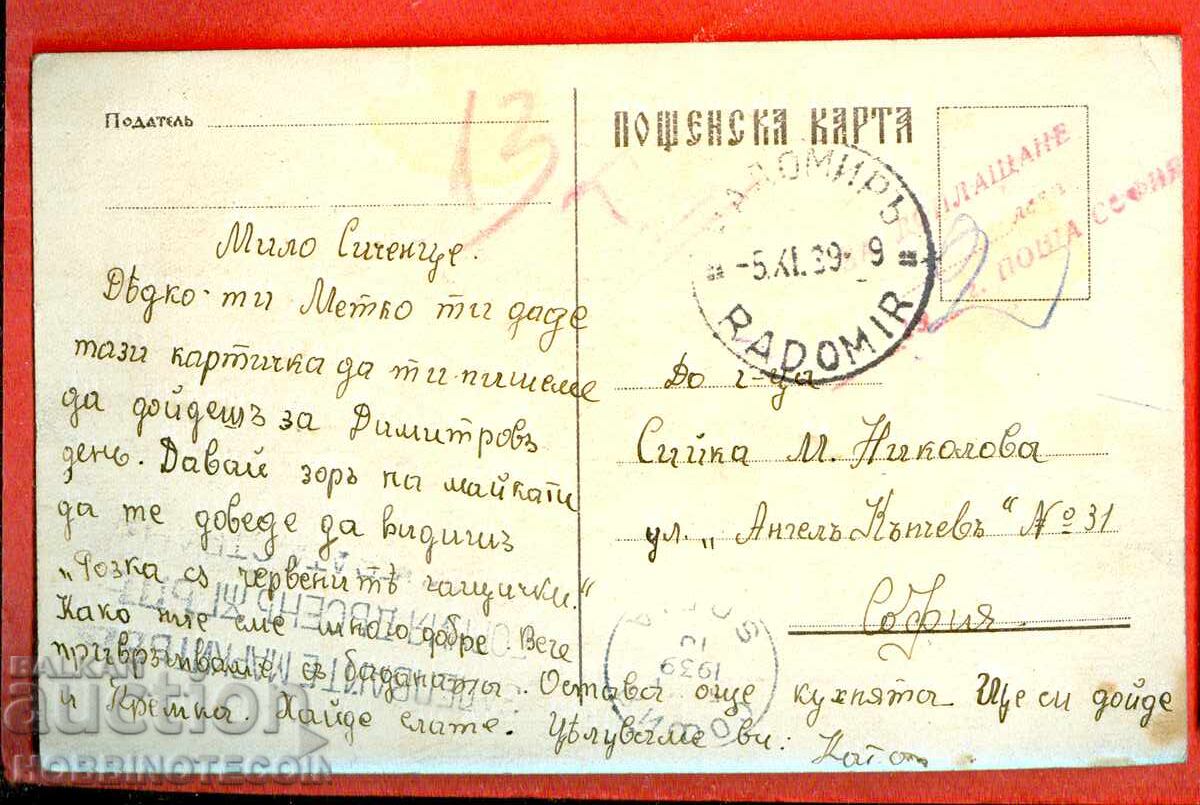 Податель
13
Мило Сиченце.
Дѣдко ти Метко ти даде
тази картичка да ти пишеме
да дойдешъ за Димитровъ
день. Давай зоръ на майкати
да те доведе да видишъ
„Розка съ червенитѣ гащички."
Како ние сме много добре. Вече
привръшваме съ баданата. Остава още кухнята. Ще си дойде
и Кремка. Хайде елате. Цѣлуваме ви:
ПОЩЕНСКА КАРТА
РАДОМИРЪ
-5.XI.39- 9
RADOMIR
ПЛАЩАНЕ
лева
ПОЩА СОФИЯ
До г-ца
Сийка М. Николова
ул. „Ангелъ Кънчевъ" № 31
София.
1939
BALKAN
auction
HOBBINOTECOIN